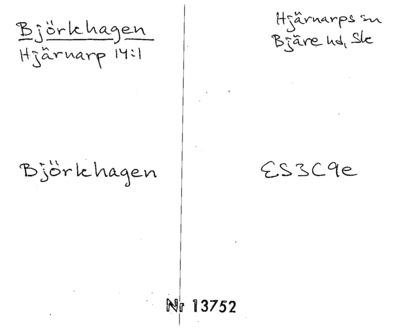 Björkhagen
Hjärnarp 14:1
Hjärnarps sn
Bjäre hd, Sk
Björkhagen
ES3C9e
Nr 13752